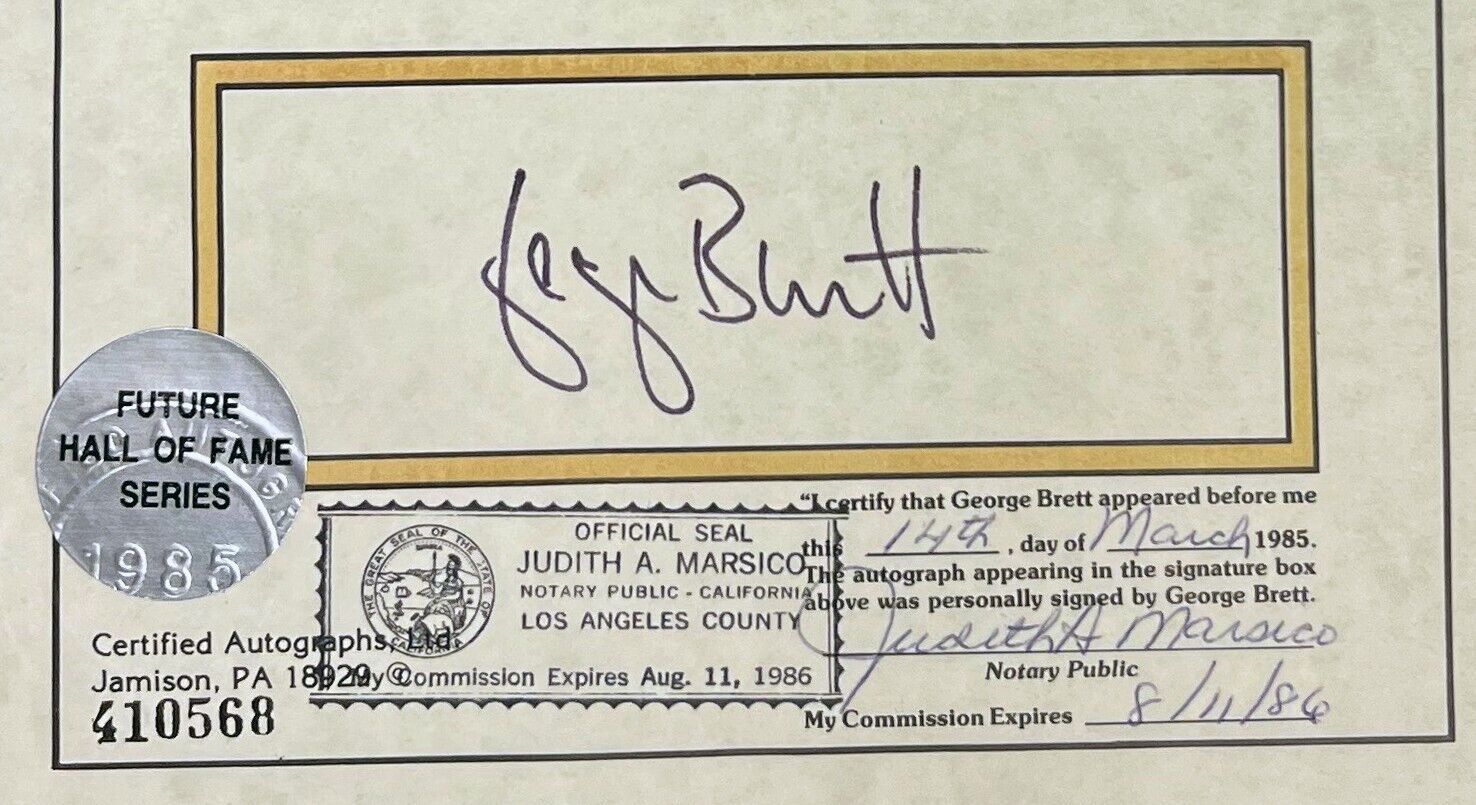 George Brett
FUTURE
HALL OF FAME
SERIES
1985
Certified Autographs, Ltd.
Jamison, PA 18929 ©
410568
OFFICIAL SEAL
JUDITH A. MARSICO
NOTARY PUBLIC - CALIFORNIA
LOS ANGELES COUNTY
My Commission Expires Aug. 11, 1986
THE GREAT SEAL OF THE STATE OF CALIFORNIA
"I certify that George Brett appeared before me
this 14th, day of March 1985.
The autograph appearing in the signature box
above was personally signed by George Brett.
Judith A Marsico
Notary Public
My Commission Expires 8/11/86